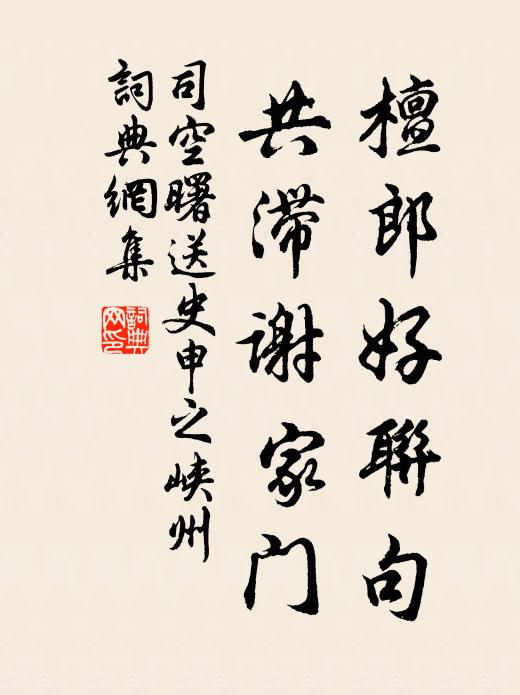 檀郎好聯句
共滞謝家门
司空曙送史申之峽州
詞典網集
詞典
网印